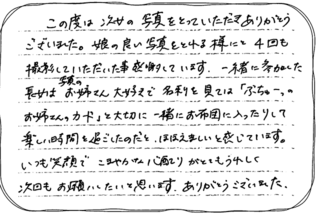 この度は次女の写真をとっていただきありがとう
ございました。娘の良い写真をとれる様にと4回も
撮影していただいた事感謝しています。一緒に参加した
長女はお姉さん大好きで名刺を見ては「ぷちゅーっの
お姉さんのカード」と大切に一緒にお布団に入ったりして
楽しい時間を過ごしたのだと、ほほえましいと感じています。
いつも笑顔でこまやかな心配りがとてもうれしく
次回もお願いしたいと思います。ありがとうございました。